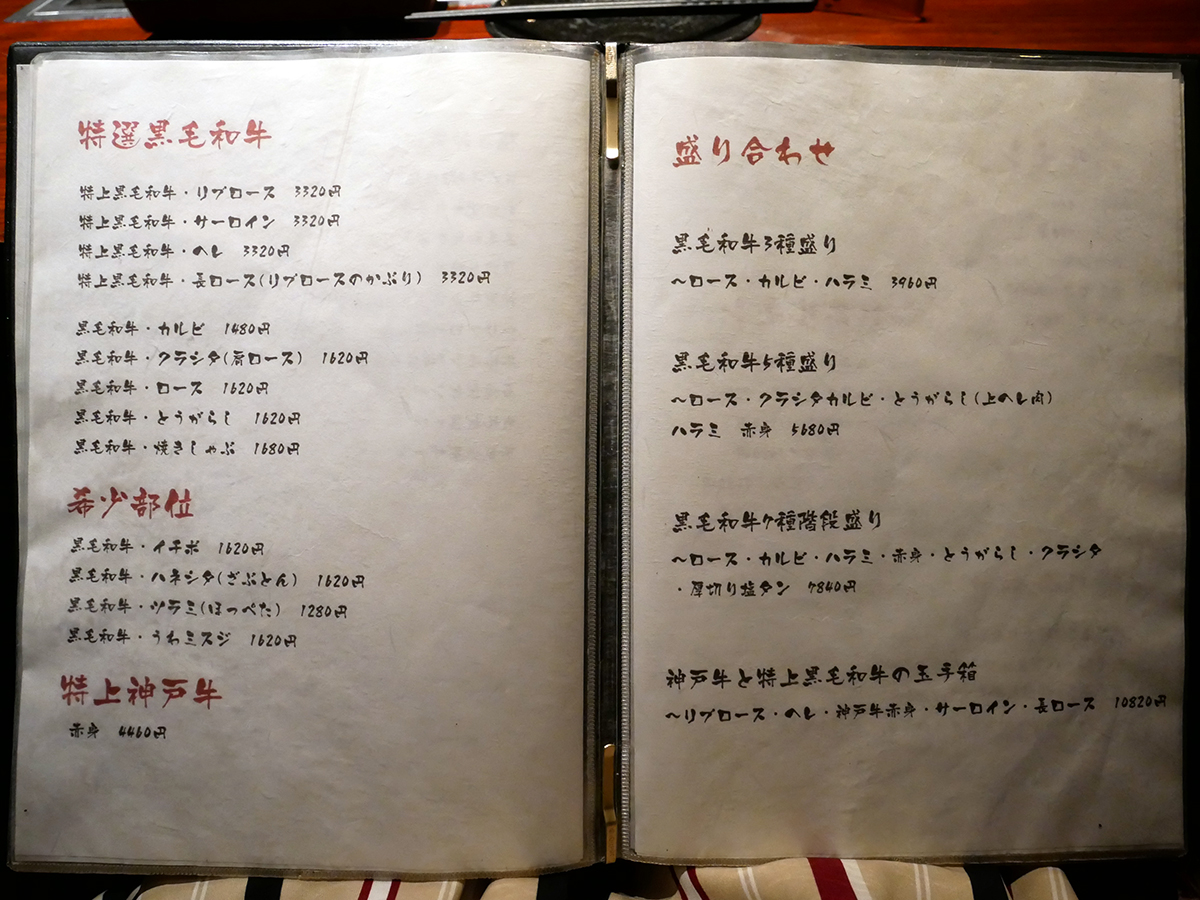 特選黒毛和牛
特上黒毛和牛・リブロース 3320円
特上黒毛和牛・サーロイン 3320円
特上黒毛和牛・ヘレ 3320円
特上黒毛和牛・長ロース(リブロースのかぶり) 3320円
黒毛和牛・カルビ 1480円
黒毛和牛・クラシタ(肩ロース) 1620円
黒毛和牛・ロース 1620円
黒毛和牛・とうがらし 1620円
黒毛和牛・焼きしゃぶ 1680円
希少部位
黒毛和牛・イチボ 1620円
黒毛和牛・ハネシタ(ざぶとん) 1620円
黒毛和牛・ツラミ(ほっぺた) 1280円
黒毛和牛・うわミスジ 1620円
特上神戸牛
赤身 4460円
盛り合わせ
黒毛和牛3種盛り
〜ロース・カルビ・ハラミ 3960円
黒毛和牛5種盛り
〜ロース・クラシタカルビ・とうがらし(上ヘレ肉)
ハラミ 赤身 5680円
黒毛和牛7種階段盛り
〜ロース・カルビ・ハラミ・赤身・とうがらし・クラシタ
・厚切り塩タン 7840円
神戸牛と特上黒毛和牛の玉手箱
〜リブロース・ヘレ・神戸牛赤身・サーロイン・長ロース 10820円